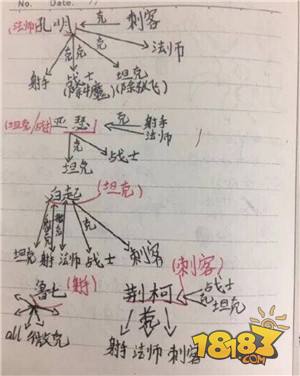 No.
Date.
(法师)孔明 克 刺客
克 克 克 法师
射手 战士 坦克
(除斗魔) (除张飞)
(坦克/战) 亚瑟 射手
法师
坦克 战士
白起 (坦克)
克
坦克 射手 法师 战士 刺客
鲁七 (射手) (刺客)
荆柯 战士
克 坦克
all 被克 克
射手 法师 刺客
18183.com